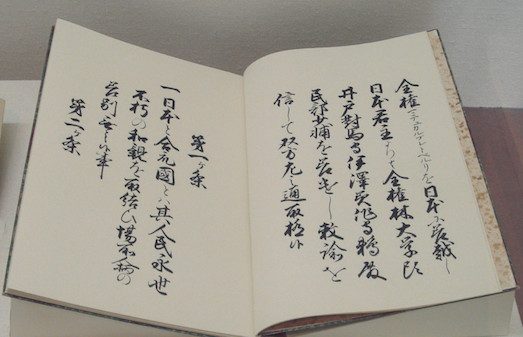 全権マテユカルブレトペルリを日本に差越し
日本君主よりは全権林大学頭
井戸對馬守伊澤美作守鵜殿
民部少輔を差遣し勅諭を
信して双方左之通取極候
第一ヶ条
一日本と合衆國とハ其人民永世
不朽の和親を取結ひ場所人柄の
差別無之候事
第二ヶ条